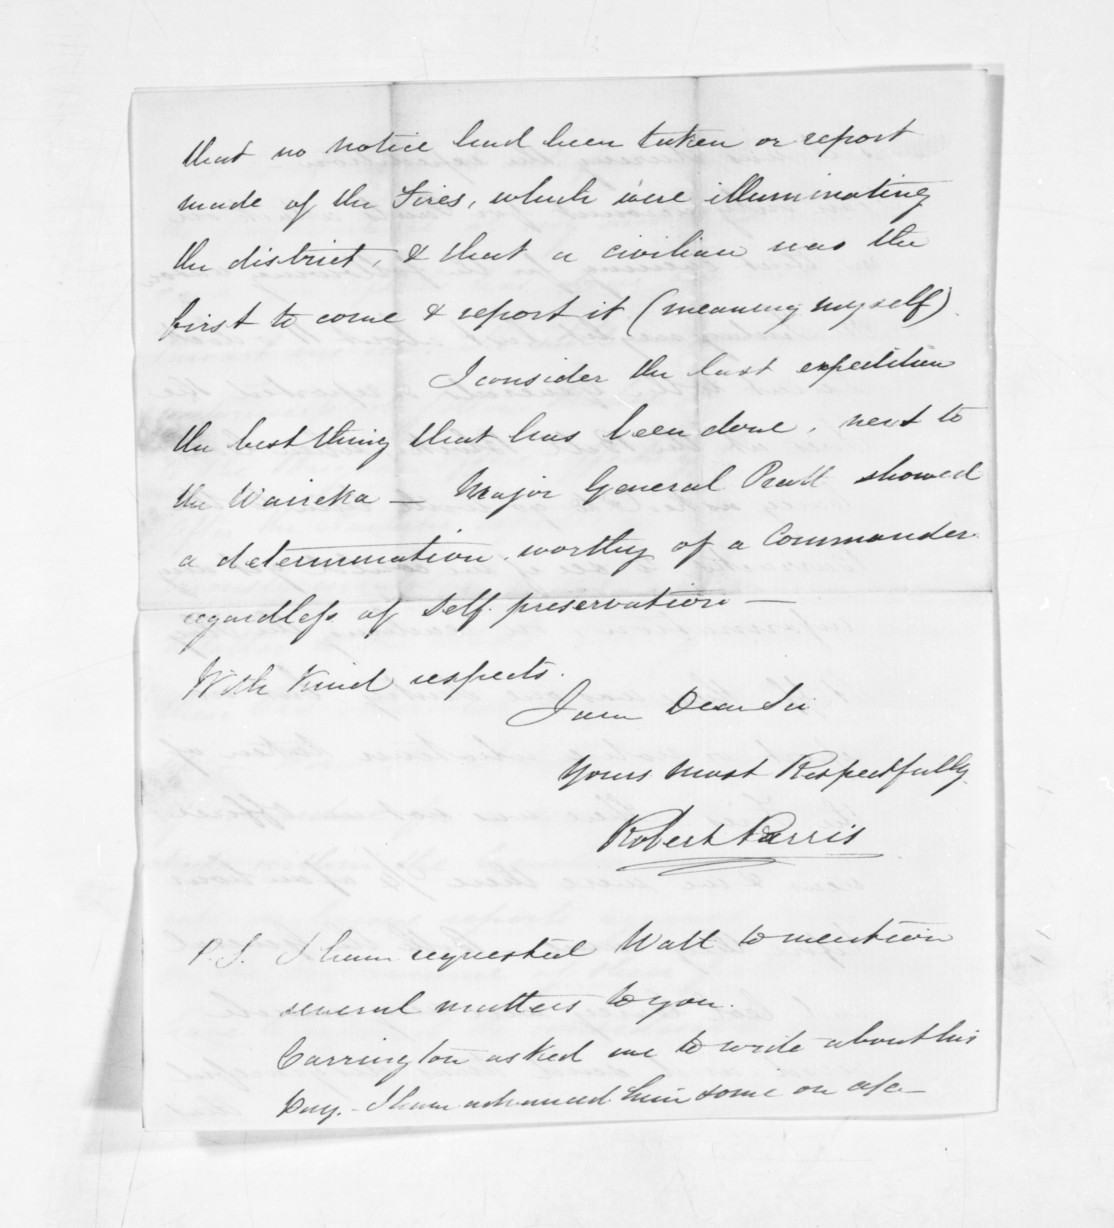 that no notice had been taken or report
made of the Fires, which were illuminating
the district, & that a civilian was the
first to come & report it (meaning myself).
I consider the last expedition
the best thing that has been done, next to
the Waireka — Major General Pratt showed
a determination worthy of a Commander
regardless of self preservation —
With kind respects.
I am Dear Sir
Yours most Respectfully
Robert Parris
P.S. I have requested Watt to mention
several matters to you.
Carrington asked me to write about his
pay. - I have advanced him some on a/c —